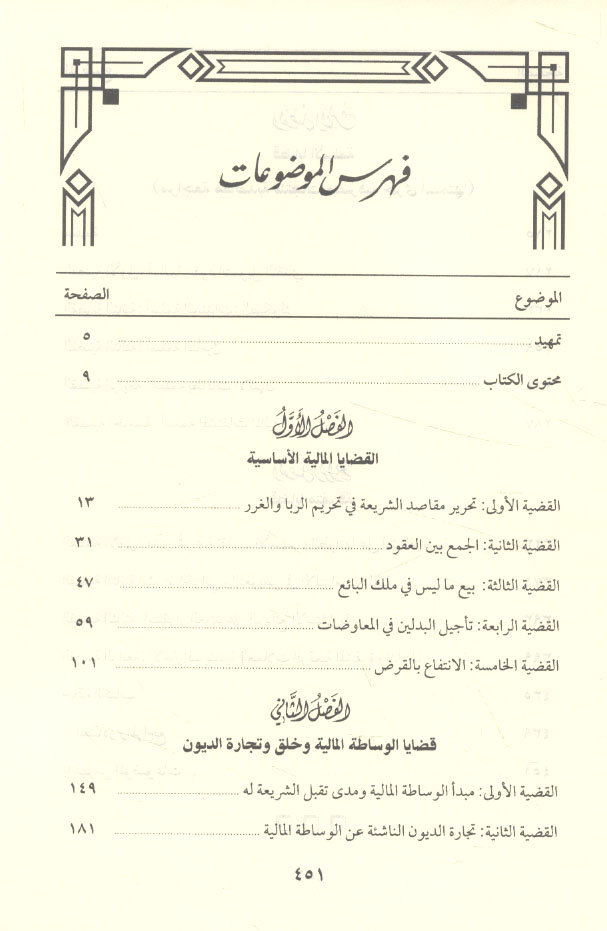 فهرس الموضوعات
الموضوع الصفحة
تمهيد ٥
محتوى الكتاب ٩
الفَصْلُ الأَوَّلُ
القضايا المالية الأساسية
القضية الأولى: تحرير مقاصد الشريعة في تحريم الربا والغرر ١٣
القضية الثانية: الجمع بين العقود ٣١
القضية الثالثة: بيع ما ليس في ملك البائع ٤٧
القضية الرابعة: تأجيل البدلين في المعاوضات ٥٩
القضية الخامسة: الانتفاع بالقرض ١٠١
الفَصْلُ الثَّانِي
قضايا الوساطة المالية وخلق وتجارة الديون
القضية الأولى: مبدأ الوساطة المالية ومدى تقبل الشريعة له ١٤٩
القضية الثانية: تجارة الديون الناشئة عن الوساطة المالية ١٨١
٤٥١